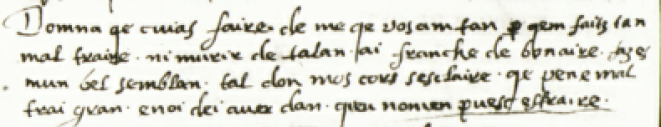 Domna qe cuias faire · de me qe vos am tan ꝑ qem faitz tan
mal traire · ni murir de talan · ai franche de bonaire · fazes
mun bel semblan · tal don mos cors sesclaire · qe pene mal
trai gran · e noi dei aver dan · qieu non ven ꝑ vest esfraire ·